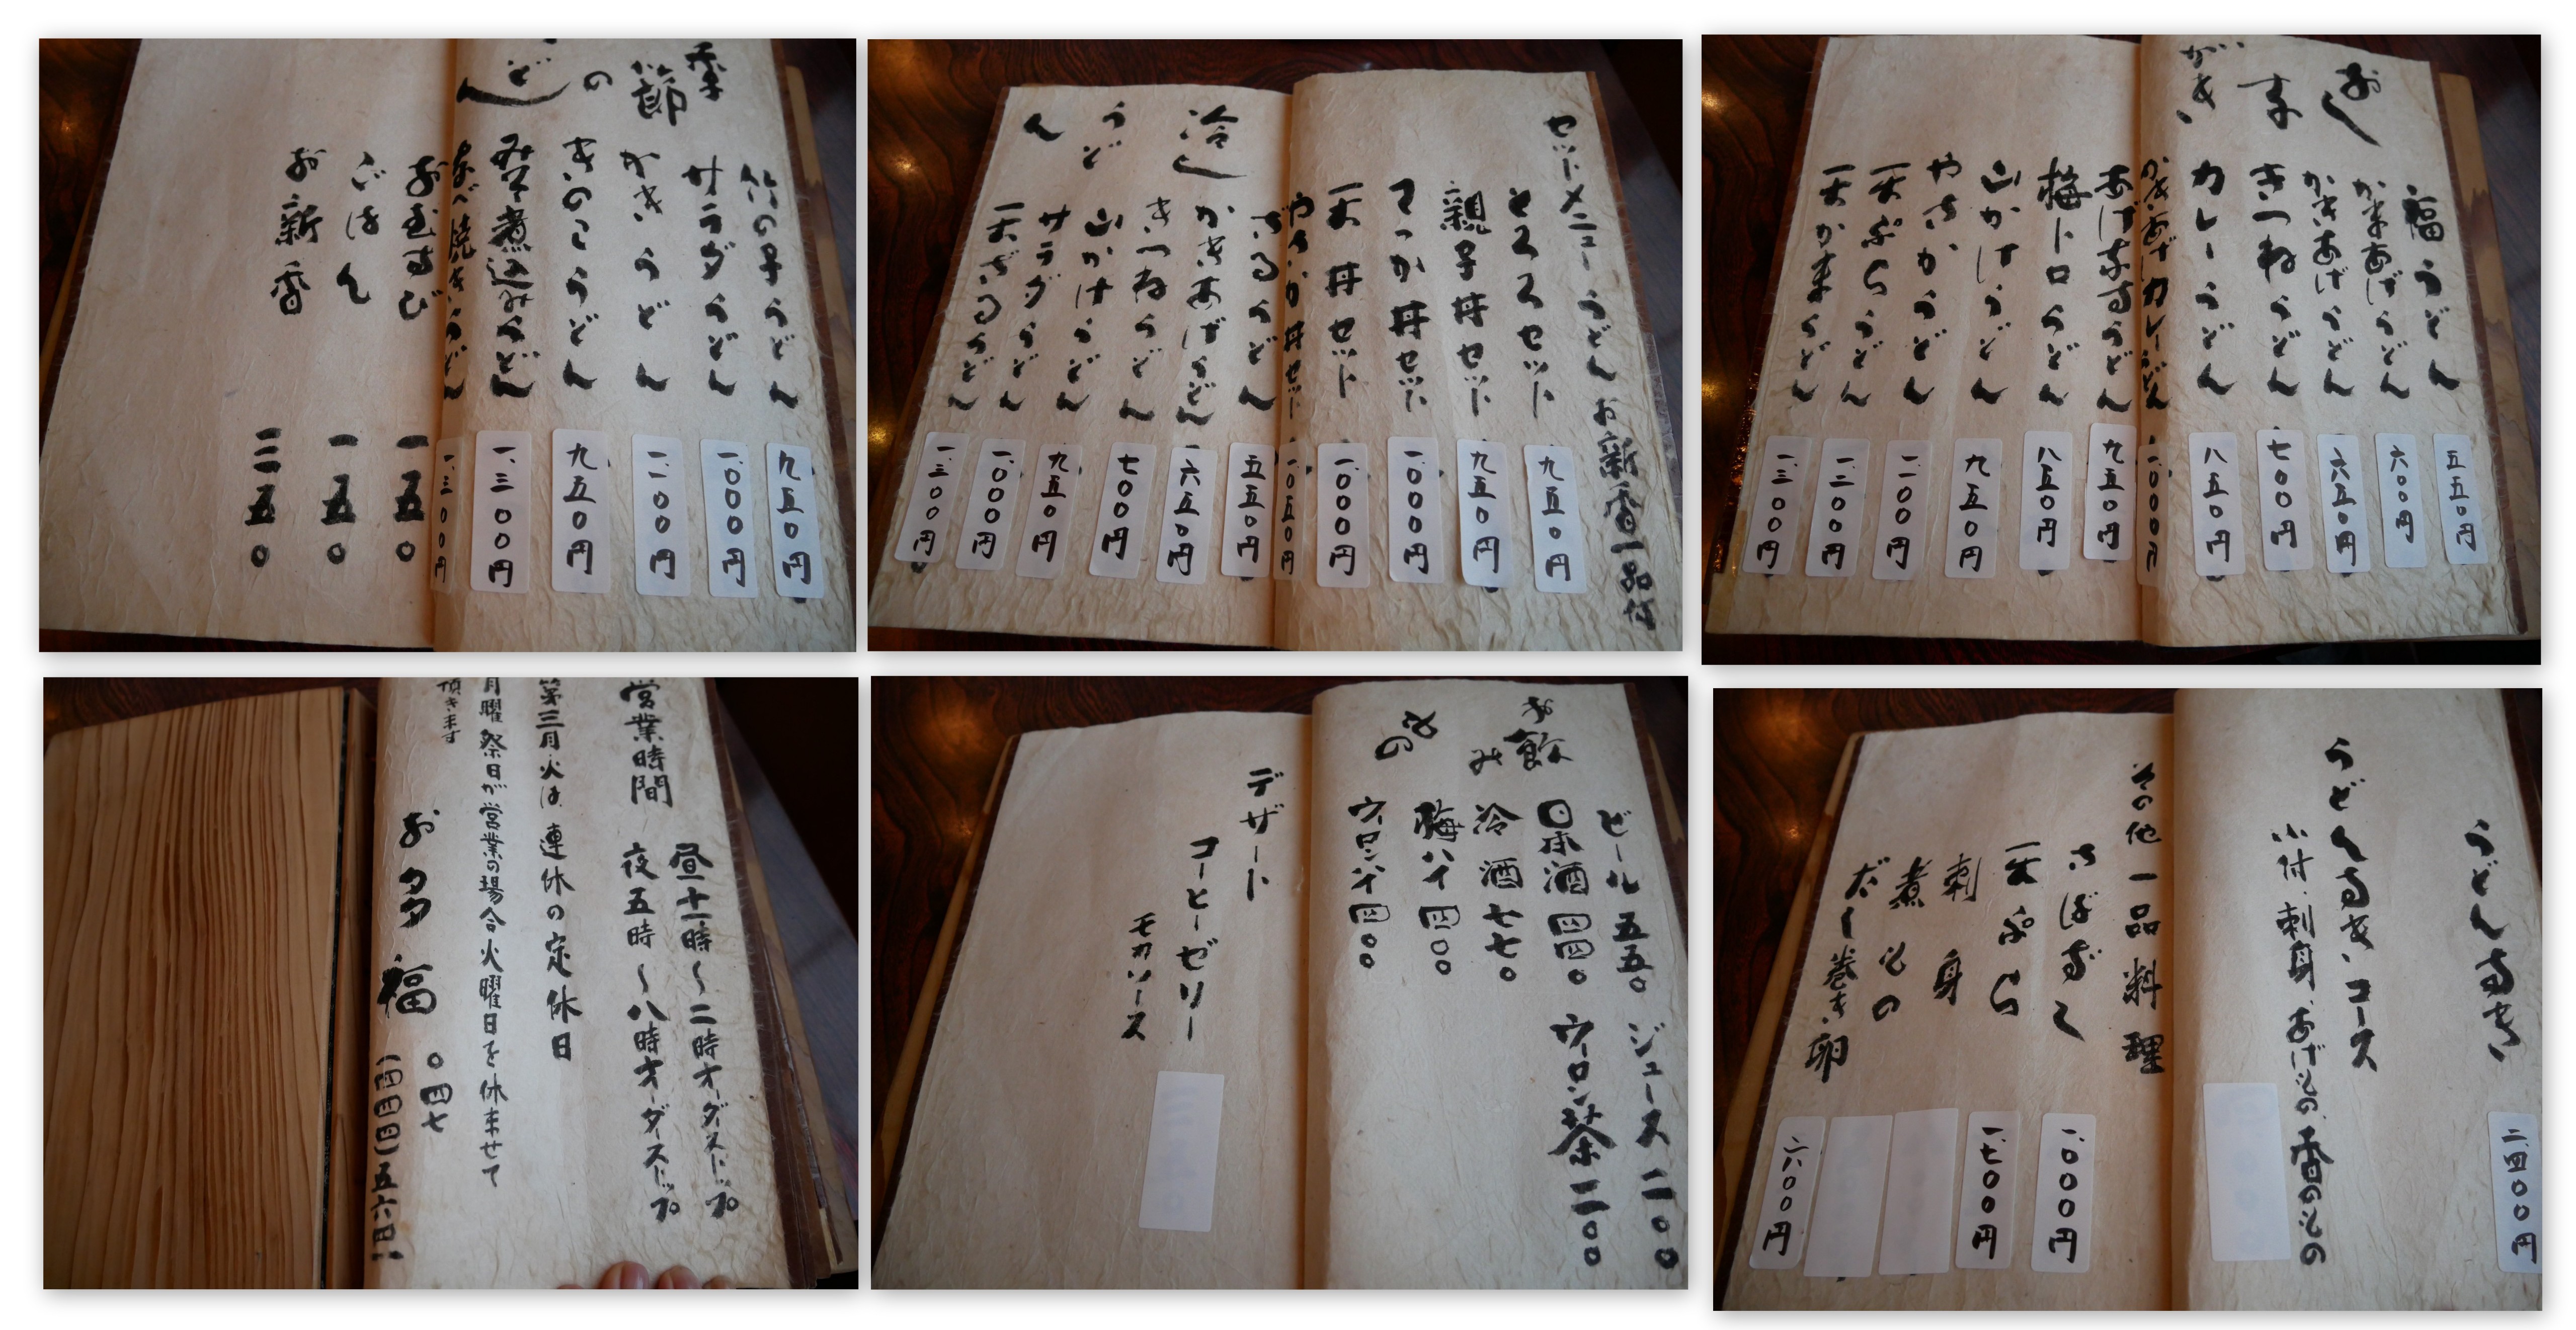 季節のうどん
竹の子うどん 九五〇円
サラダうどん 一、〇〇〇円
かきうどん 一、二〇〇円
きのこうどん 九五〇円
みそ煮込みうどん 一、三〇〇円
なべ焼きうどん 一、三〇〇円
おむすび 一五〇
ごはん 一五〇
お新香 三五〇
セットメニュー うどん お新香一品付
とろろセット 九五〇円
親子丼セット 九五〇円
てっか丼セット 一、〇〇〇円
天丼セット 一、〇〇〇円
やきとり丼セット 一、〇五〇円
冷しうどん
ざるうどん 五五〇円
かきあげうどん 六五〇円
きつねうどん 七〇〇円
山かけうどん 九五〇円
サラダうどん 一、〇〇〇円
天ざるうどん 一、三〇〇円
おしながき
福うどん 五五〇円
かまあげうどん 六〇〇円
かきあげうどん 六五〇円
きつねうどん 七〇〇円
カレーうどん 八五〇円
かきあげカレーうどん 一、〇〇〇円
あげなすうどん 九五〇円
梅トロうどん 八五〇円
山かけうどん 九五〇円
天ぷらうどん 一、二〇〇円
天かまうどん 一、三〇〇円
営業時間
昼十一時〜二時オーダーストップ
夜五時〜八時オーダーストップ
第三月、火は、連休の定休日
月曜 祭日が営業の場合火曜日を休ませて
頂きます
お多福
〇四七
(四四四)五六
お飲みもの
ビール 五五〇
日本酒 四四〇
冷酒 七七〇
梅ハイ 四〇〇
ウーロンハイ 四〇〇
ジュース 二〇〇
ウーロン茶 二〇〇
デザート
コーヒーゼリー
モカソース
うどんすき 二、四〇〇円
うどんすき、コース
小付、刺身、あげもの、香のもの
その他一品料理
天ぷら 一、七〇〇円
刺身
煮もの
だし巻き卵 六〇〇円